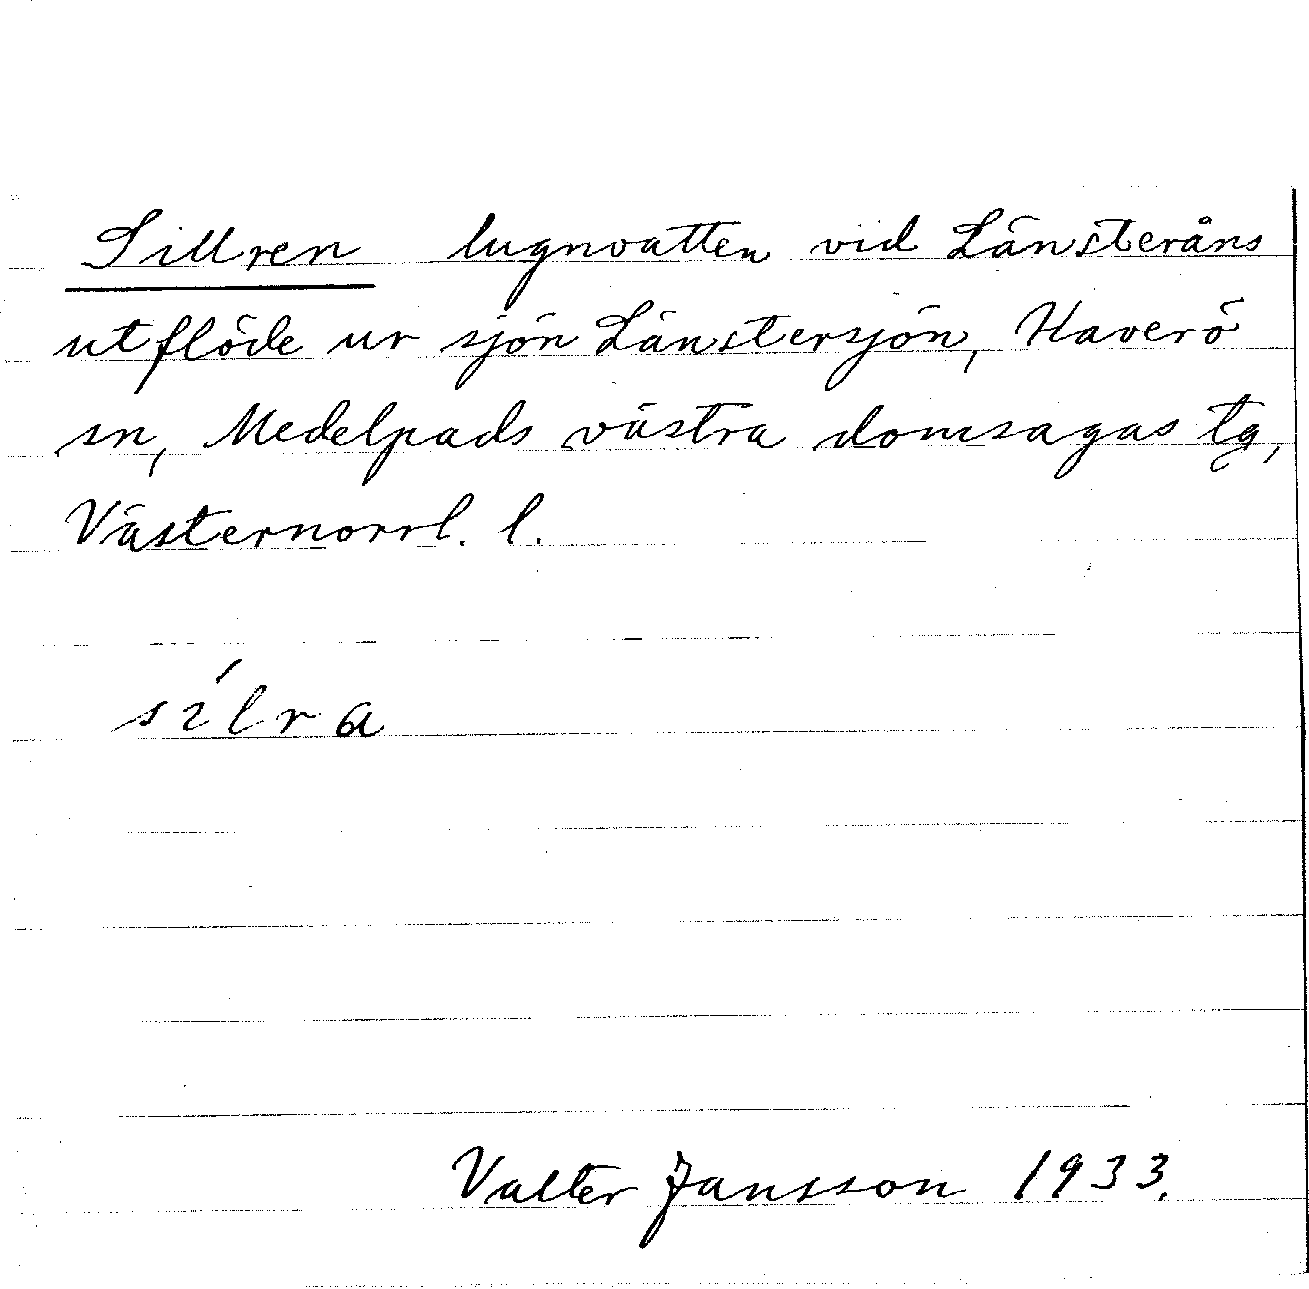 Sillren lugnvatten vid Länsteråns
utflöde ur sjön Länstersjön, Haverö
sn, Medelpads västra domsagas tg,
Västernorrl. l.
sílra
Valter Jansson 1933.